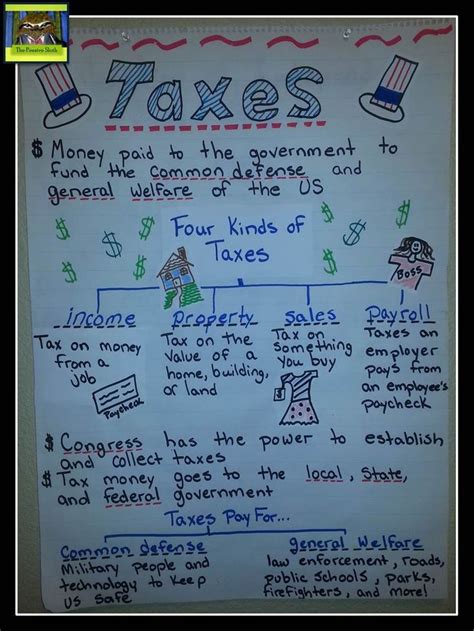 The Pensive Sloth
Taxes
$ Money paid to the government to
fund the common defense and
general welfare of the US
Four Kinds of
Taxes
income
Tax on money
from a
job
Paycheck
property
Tax on the
value of a
home, building,
or land
sales
Tax on
something
you buy
BOSS
payroll
Taxes an
employer
pays from
an employee's
paycheck
$ Congress has the power to establish
and collect taxes
$ Tax money goes to the local, state,
and federal government
Taxes Pay For...
Common defense
Military people and
technology to keep
US safe
general Welfare
law enforcement, roads,
public schools, parks,
firefighters, and more!